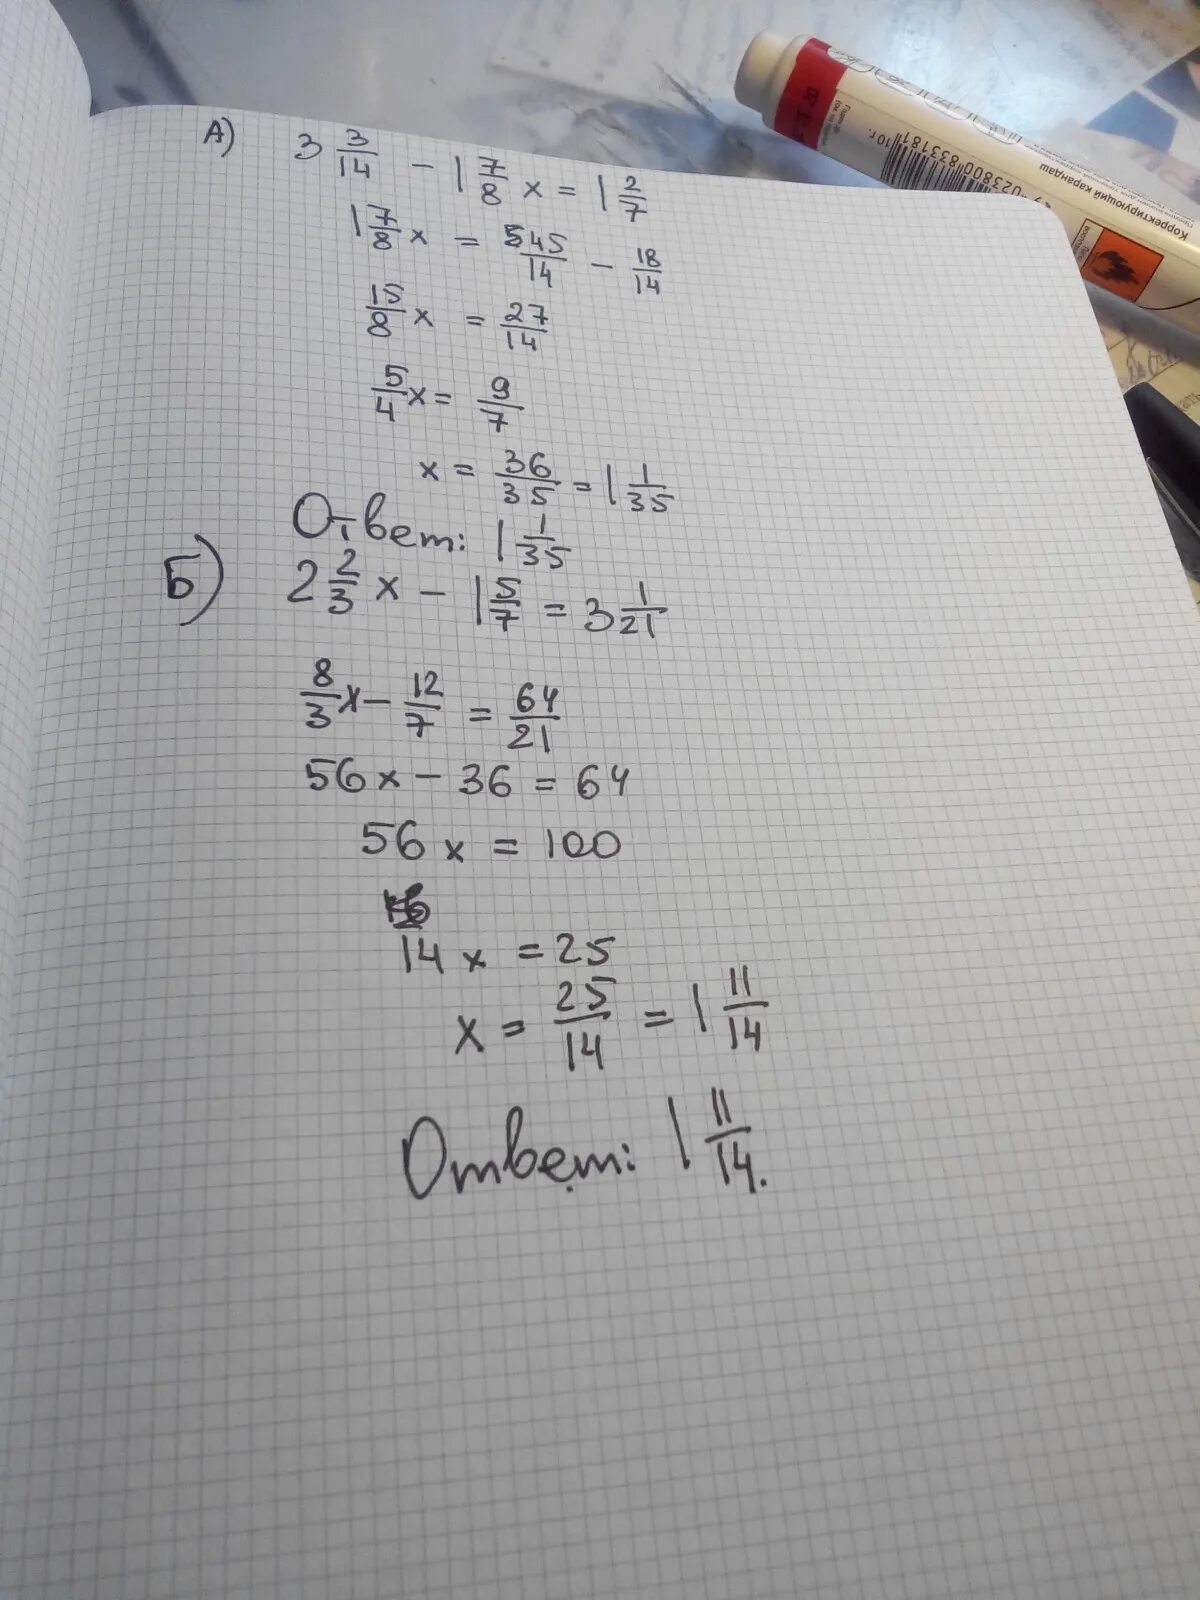 А) 3 3/14 - 1 7/8 x = 1 2/7
1 7/8 x = 545/14 - 18/14
15/8 x = 27/14
5/4 x = 9/7
x = 36/35 = 1 1/35
Ответ: 1 1/35
Б) 2 2/3 x - 1 5/7 = 3 1/21
8/3 x - 12/7 = 64/21
56x - 36 = 64
56x = 100
14x = 25
x = 25/14 = 1 11/14
Ответ: 1 11/14.
Корректирующий карандаш
10 г.
023800 833181